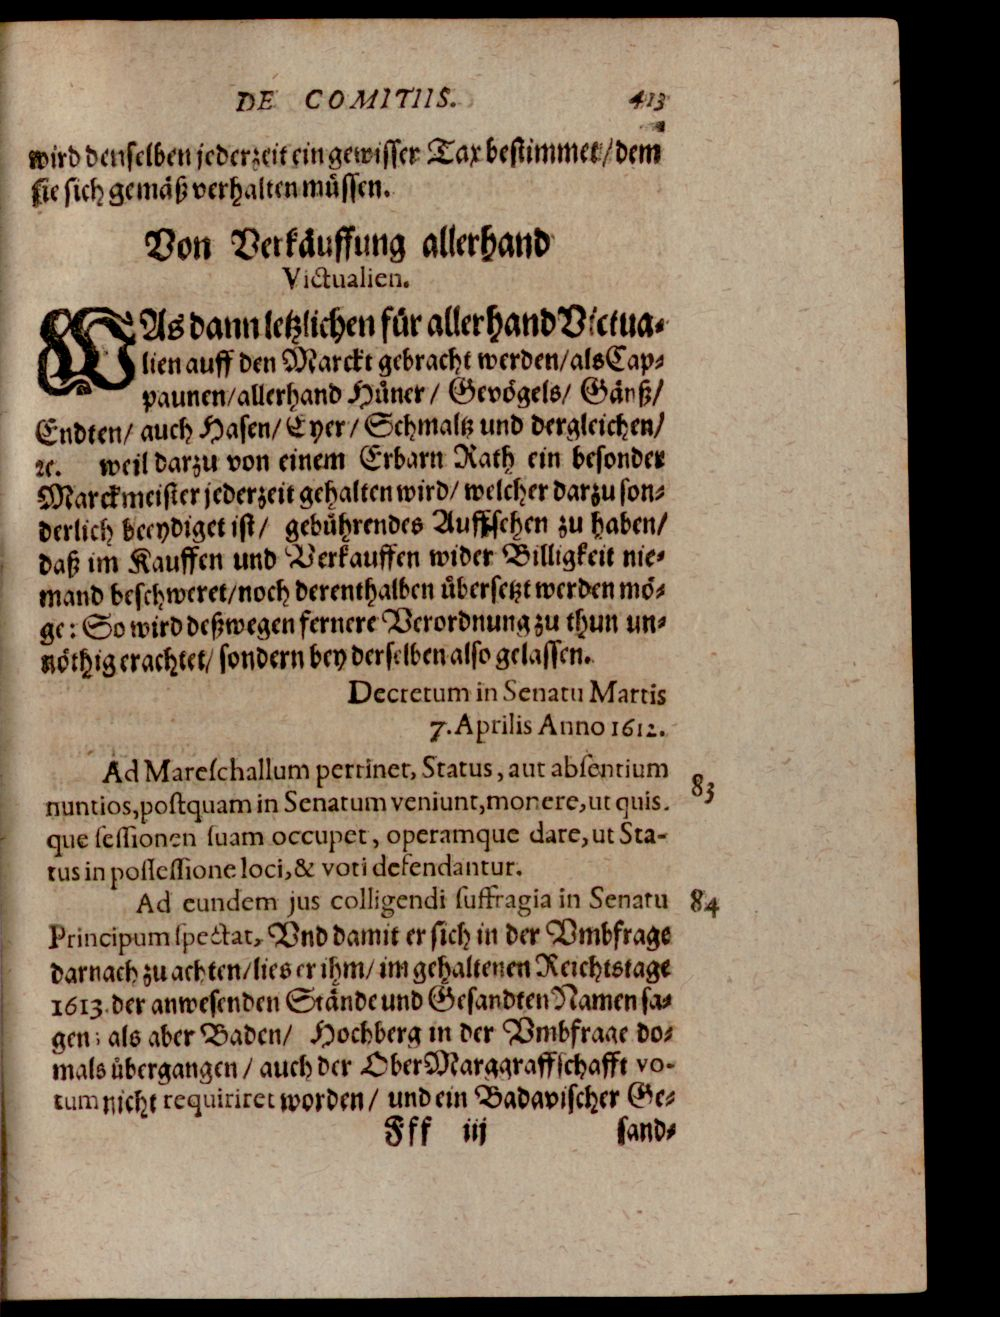 DE COMITIIS. 413
wird denselben jederzeit ein gewisser Tax bestimmet/ dem
sie sich gemäß verhalten müssen.
Von Verkäuffung allerhand
Victualien.
WAs dann letzlichen für allerhand Victua-
lien auff den Marckt gebracht werden/ als Cap-
paunen/ allerhand Hüner/ Gevögels/ Gänß/
Endten/ auch Hasen/ Eyer/ Schmaltz und dergleichen/
ꝛc. weil darzu von einem Erbarn Rath ein besonder
Marckmeister jederzeit gehalten wird/ welcher darzu son-
derlich beeydiget ist/ gebührendes Auffsehen zu haben/
daß im Kauffen und Verkauffen wider Billigkeit nie-
mand beschweret/ noch derenthalben übersetzt werden mö-
ge: So wird deßwegen fernere Verordnung zu thun un-
nöthig erachtet/ sondern bey derselben also gelassen.
Decretum in Senatu Martis
7. Aprilis Anno 1612.
Ad Mareschallum pertinet, Status, aut absentium 83
nuntios, postquam in Senatum veniunt, monere, ut quis-
que sessionen suam occupet, operamque dare, ut Sta-
tus in possessione loci, & voti defendantur.
Ad eundem jus colligendi suffragia in Senatu 84
Principum spectat, Vnd damit er sich in der Vmbfrage
darnach zu achten/ lies er ihm/ im gehaltenen Reichstage
1613. der anwesenden Stände und Gesandten Namen sa-
gen; als aber Baden/ Hochberg in der Vmbfrage do-
mals übergangen/ auch der OberMarggraffschafft vo-
tum nicht requiriret worden/ und ein Badavischer Ge-
Fff iij sand-